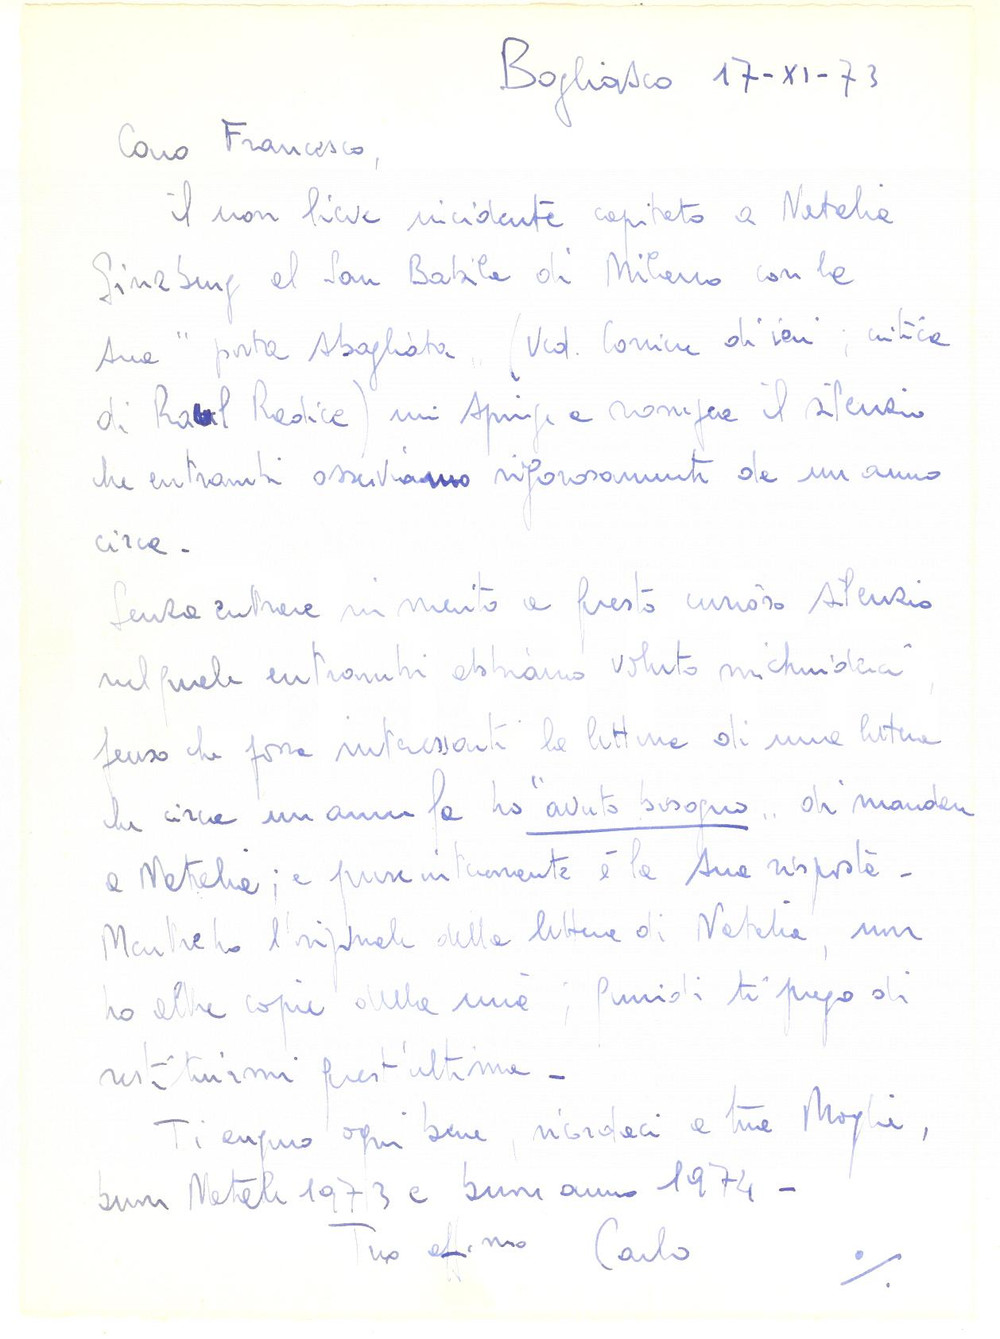 Bogliasco 17-XI-73
Caro Francesco,
il non lieve incidente capitato a Natalia
Ginzburg al San Babila di Milano con la
sua "porta sbagliata" (ved. Corriere di ieri; critica
di Raul Radice) mi spinge a rompere il silenzio
che entrambi osserviamo rigorosamente da un anno
circa -
Senza entrare in merito a questo curioso silenzio
nel quale entrambi abbiamo voluto rinchiuderci,
penso che possa interessarti la lettura di una lettera
che circa un anno fa ho "avuto bisogno" di mandare
a Natalia; e pure interessante è la sua risposta -
Mentre ho l'originale della lettera di Natalia, non
ho altre copie della mia; quindi ti prego di
restituirmi quest'ultima -
Ti auguro ogni bene, ricordaci a tua Moglie,
buon Natale 1973 e buon anno 1974 -
Tuo aff.mo Carlo
./.